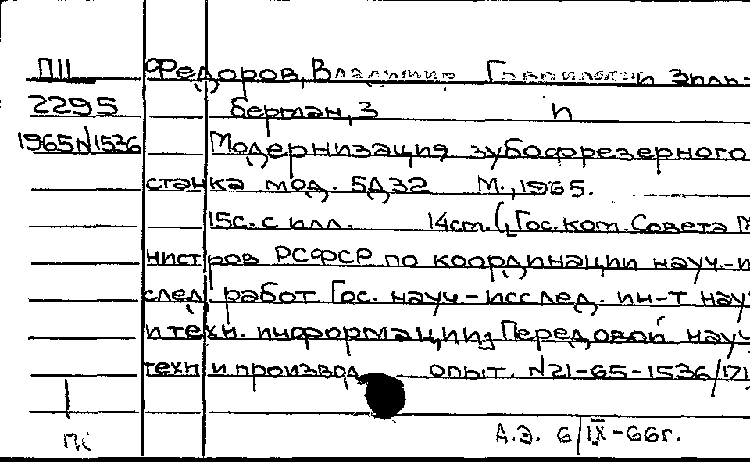 ПII Федоров, Владимир Гаврилович Эпл-
2295 Берман, З
1965 N1536 Модернизация зубофрезерного
станка мод. 5Д32 М., 1965.
15с. с илл. 14cm. (Гос. ком. Совета М
нистров РСФСР по координации науч.-и
след. работ Гос. науч.-исслед. ин-т науч
и техн. информации; Передовой науч
техн и производ опыт. N21-65-1536/171
ПК А.Э. 6/IX-66г.